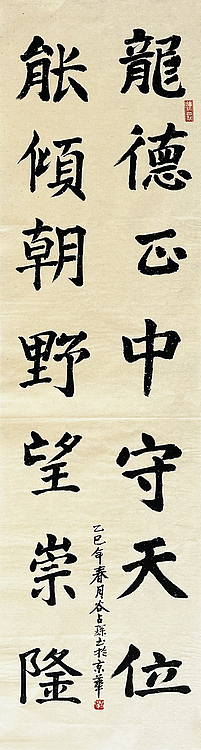 龍德正中守天位
能傾朝野望崇隆
乙巳年春月谷占琛書於京華